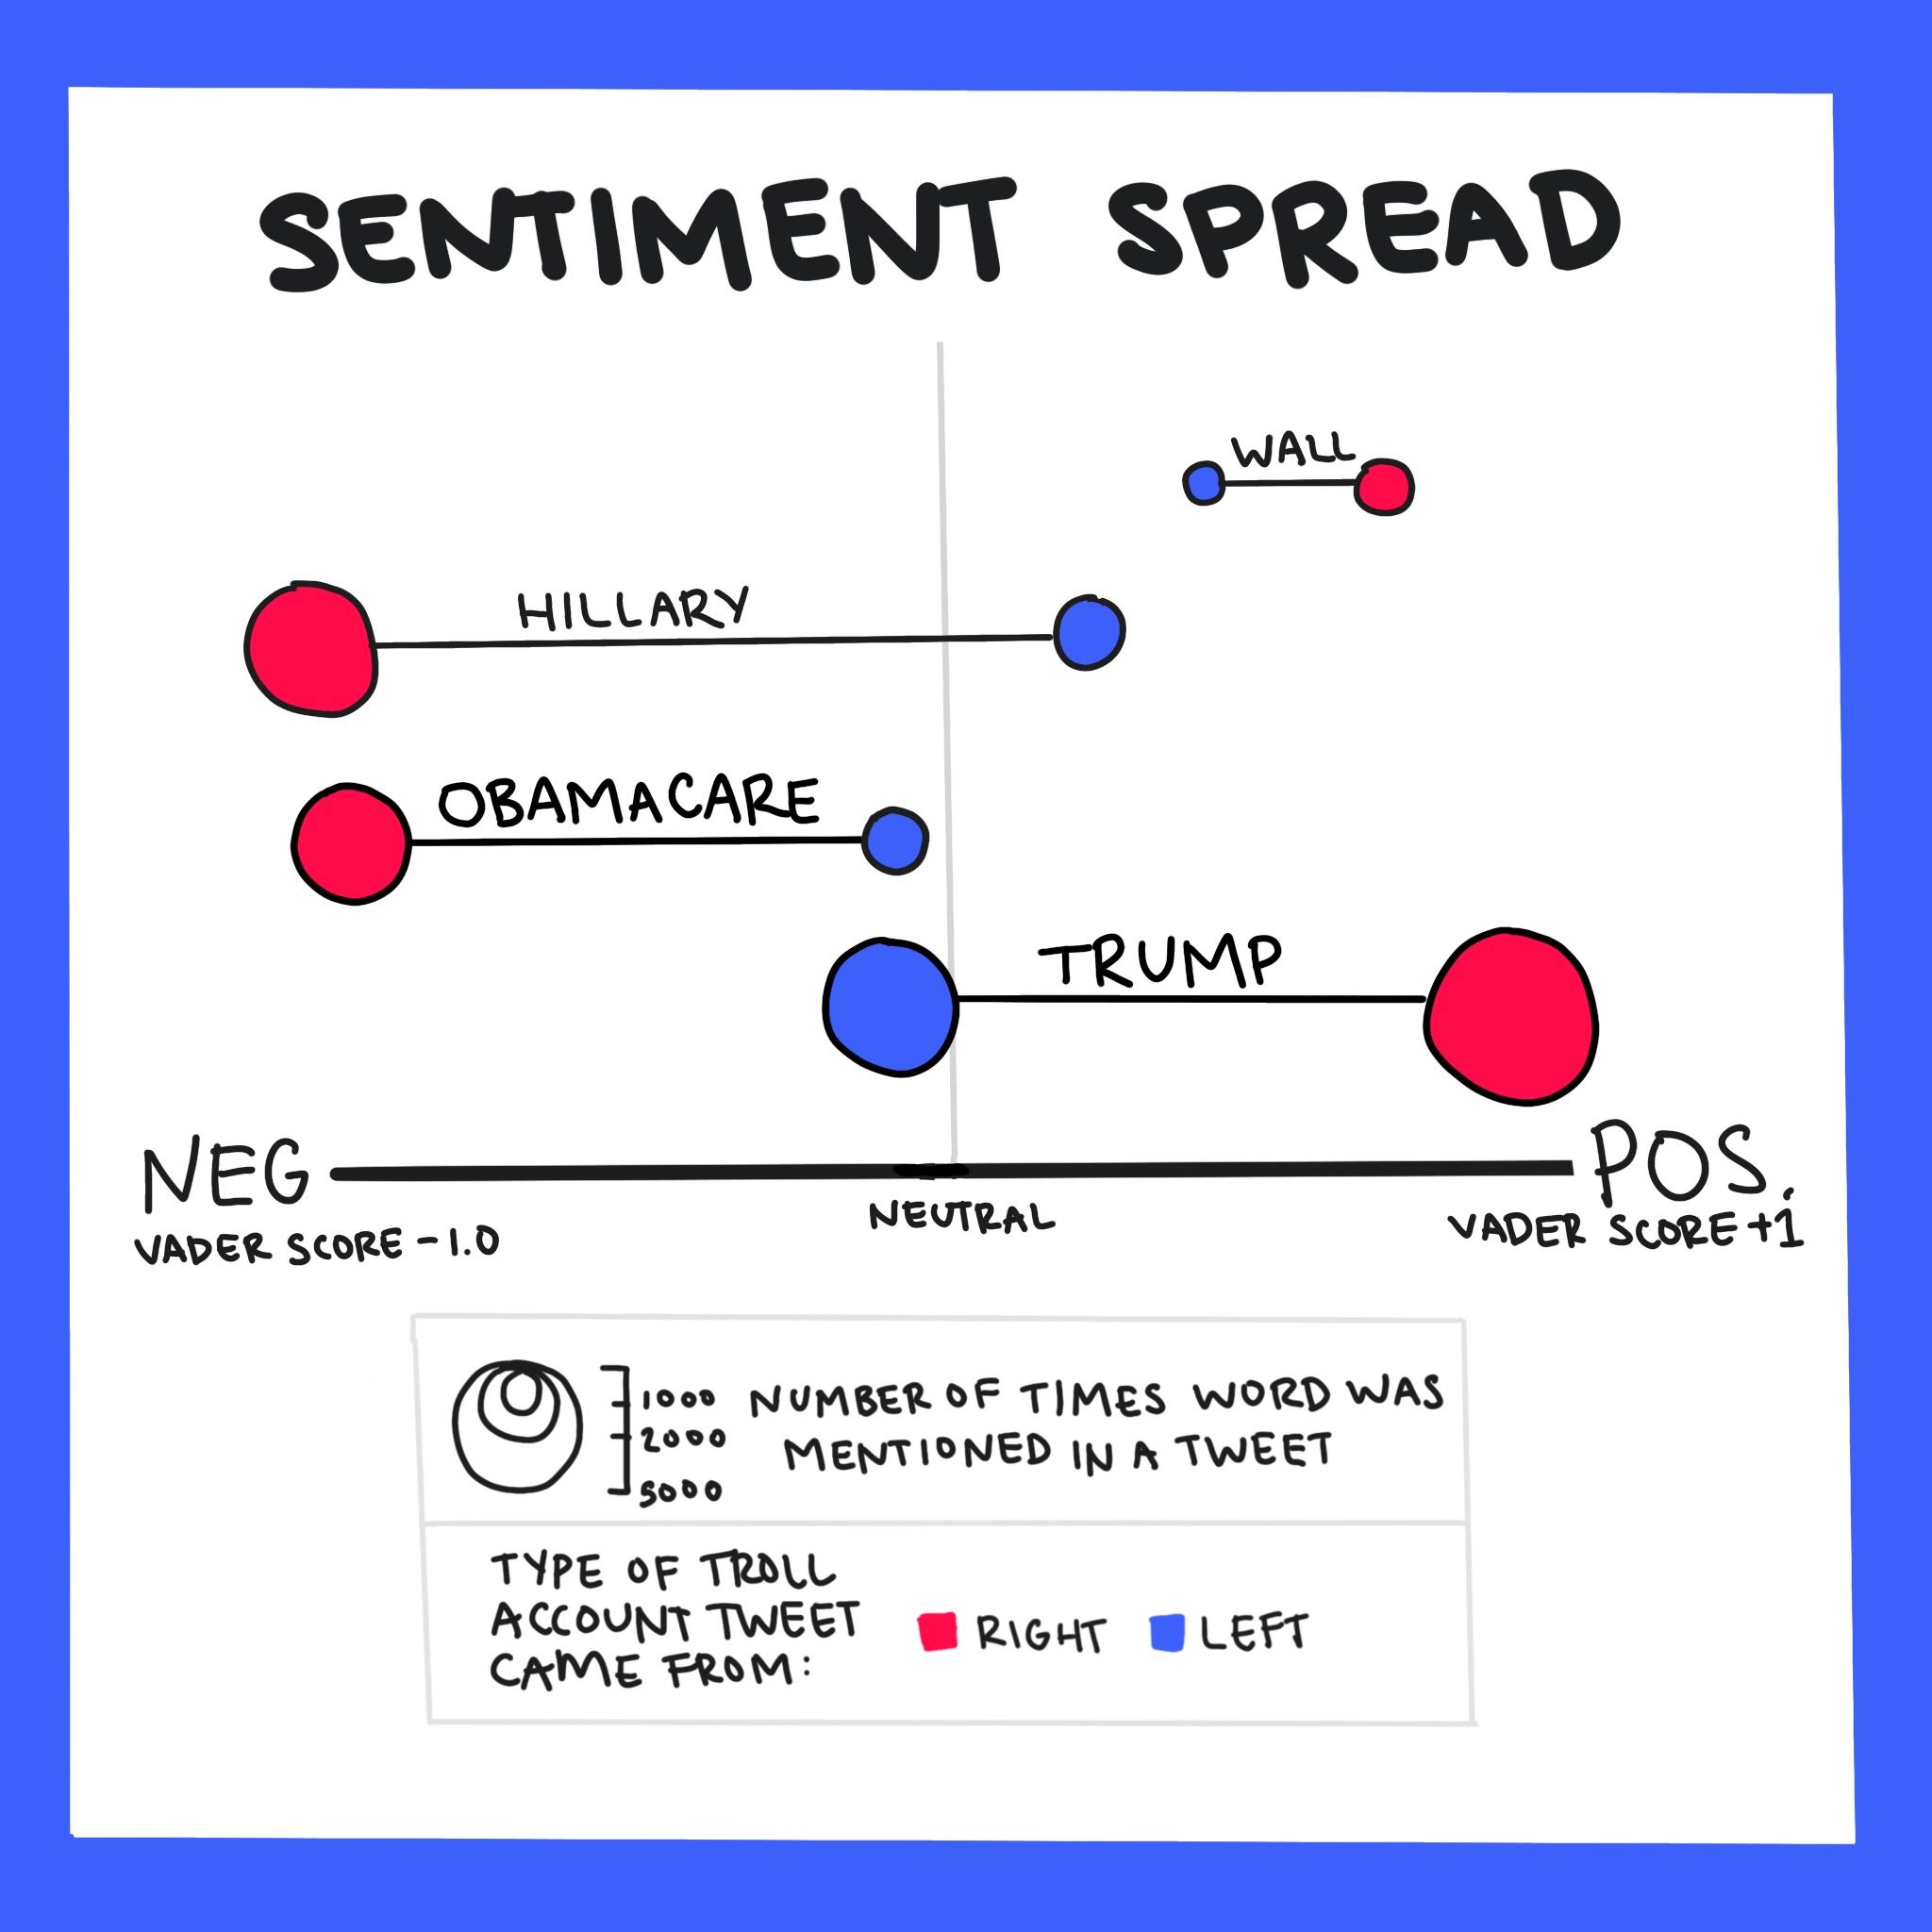 SENTIMENT SPREAD
WALL
HILLARY
OBAMACARE
TRUMP
NEG
POS.
VADER SCORE -1.0
NEUTRAL
VADER SCORE +1
1000
2000
5000
NUMBER OF TIMES WORD WAS
MENTIONED IN A TWEET
TYPE OF TROLL
ACCOUNT TWEET
CAME FROM:
RIGHT
LEFT